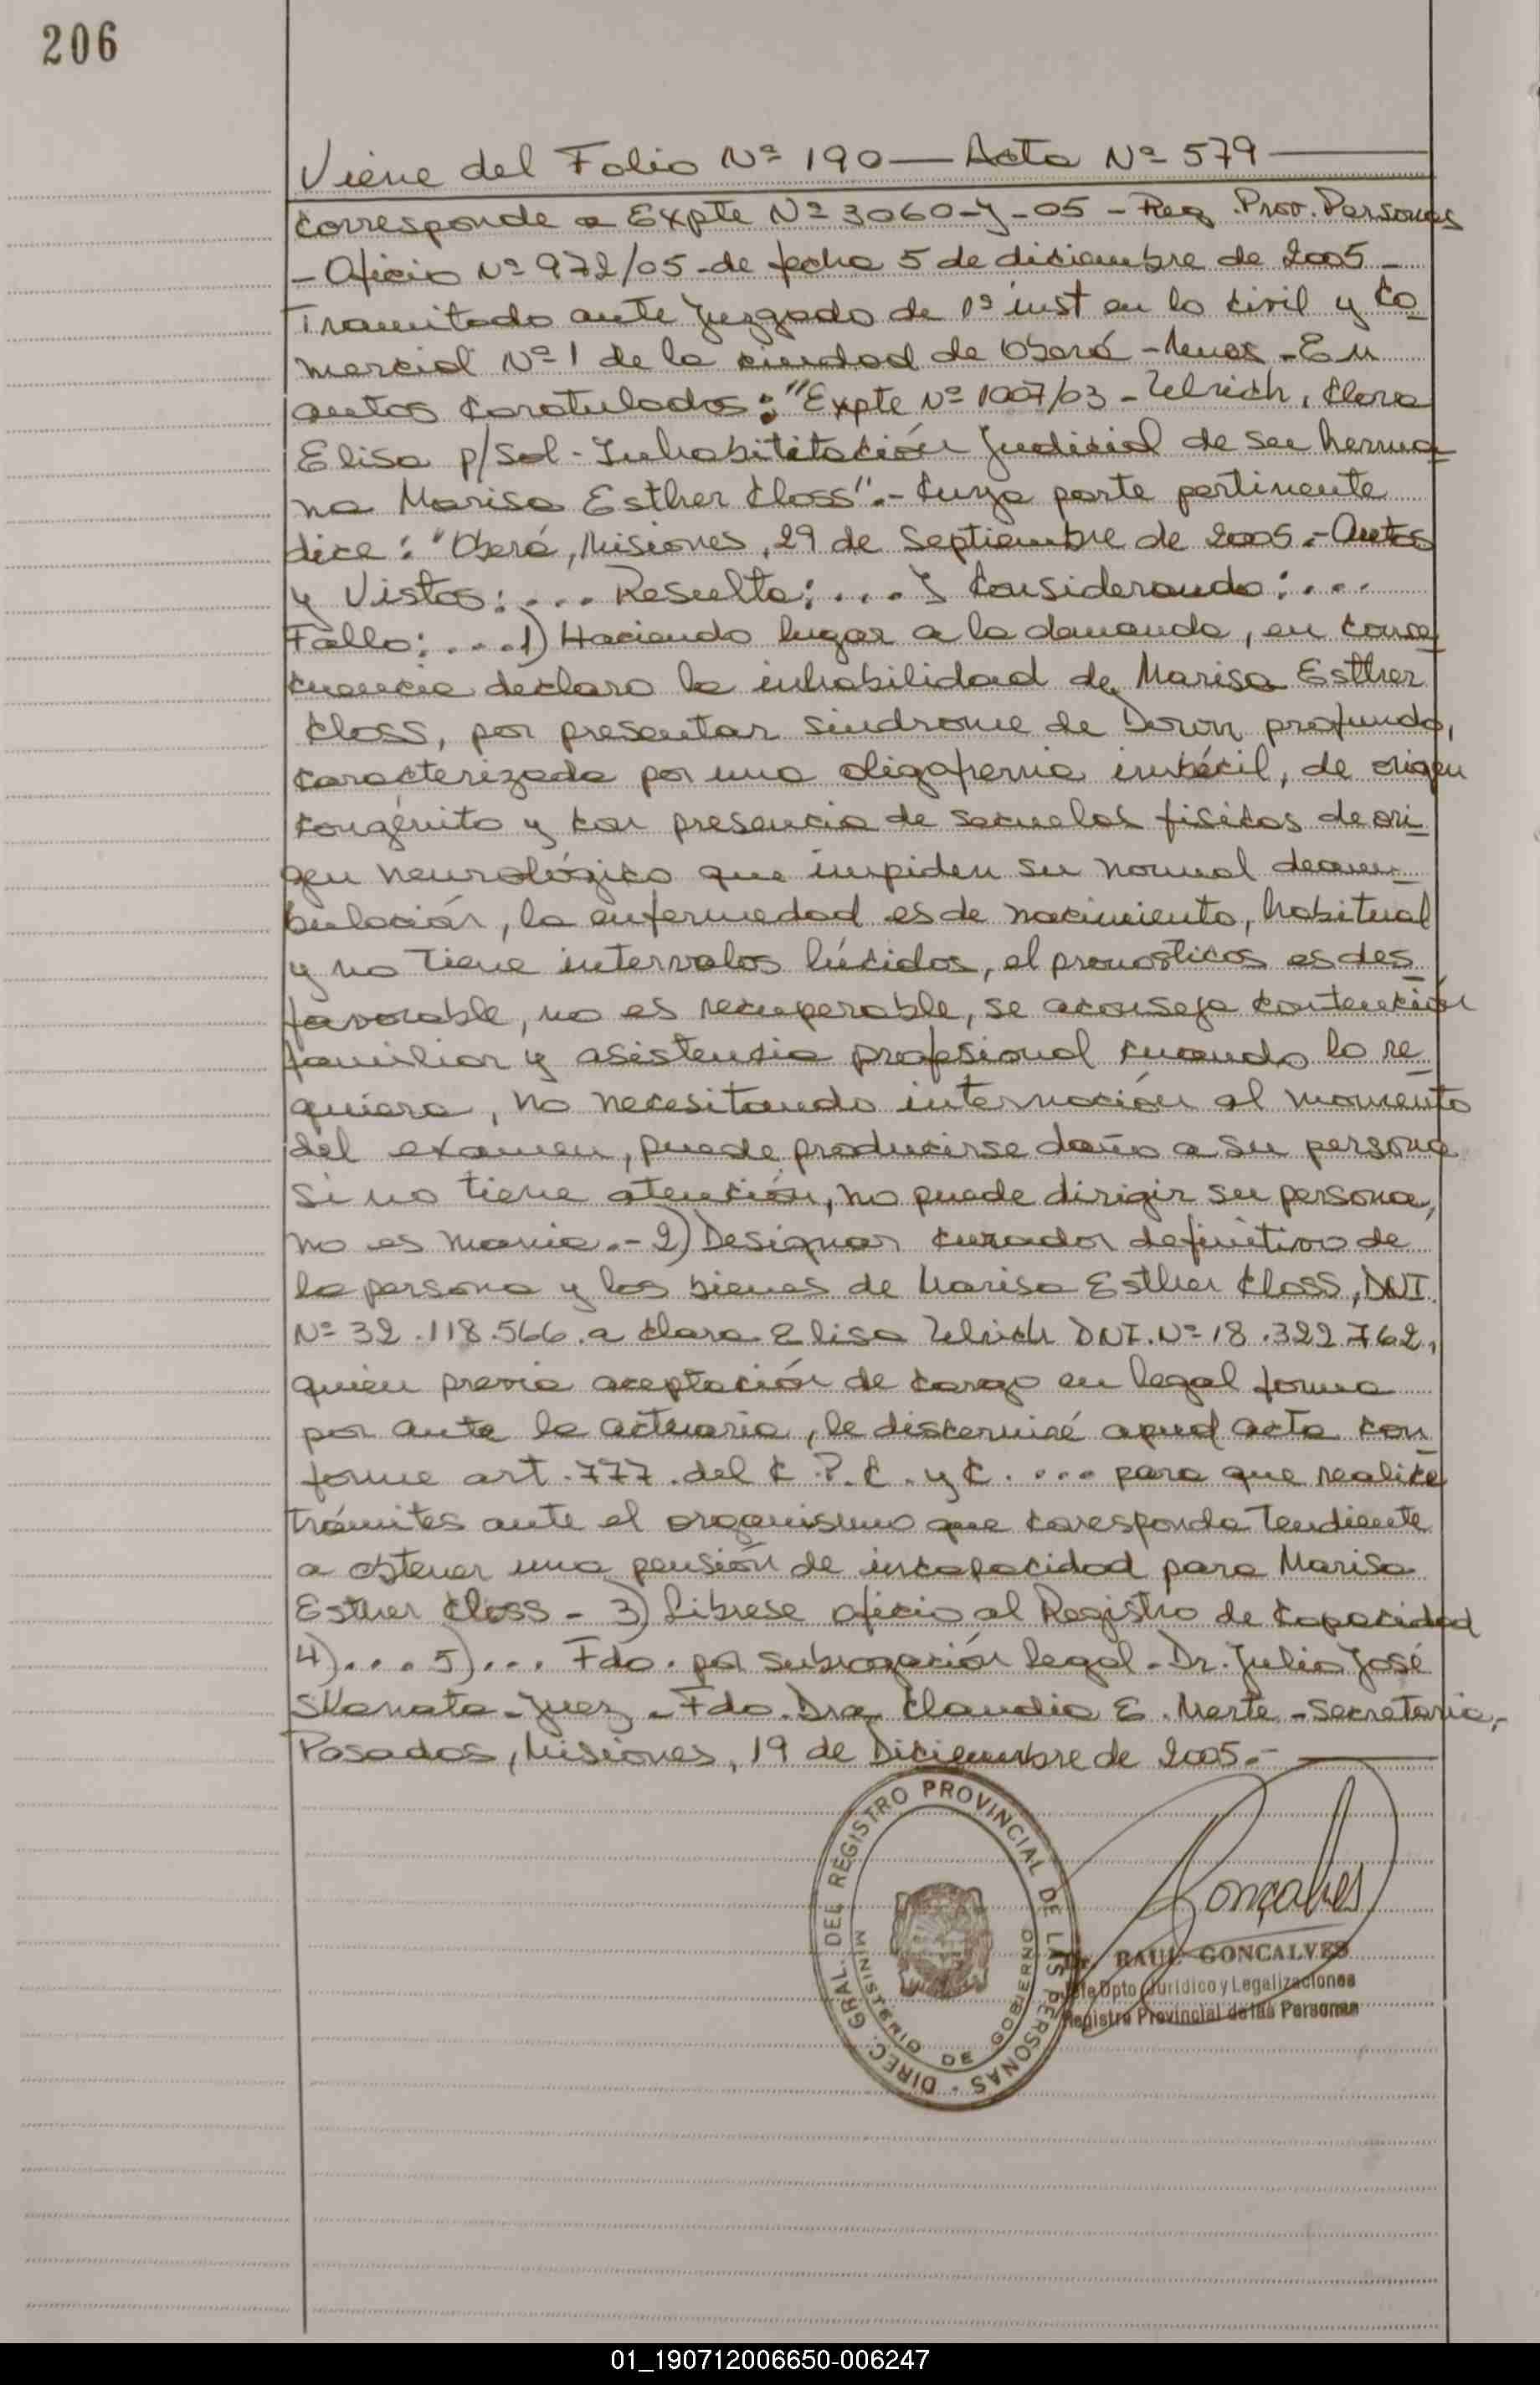 206
Viene del Folio Nº 190 — Acta Nº 579
Corresponde a Expte Nº 3060-J-05 - Reg. Prov. Personas
- Oficio Nº 972/05 - de fecha 5 de diciembre de 2005 -
Tramitado ante Juzgado de 1º inst en lo Civil y Co
mercial Nº 1 de la ciudad de Oberá - Mnes - En
autos caratulados: "Expte Nº 1007/03 - Ulrich, Clara
Elisa p/Sol - Inhabititación Judicial de su herma
na Marisa Esther Closs".- Cuya parte pertinente
dice: "Oberá, Misiones, 29 de Septiembre de 2005.- Autos
y Vistos: .... Resulta; .... Y Considerando: ...
Fallo: .... 1) Haciendo lugar a la demanda, en conse
cuencia declaro la inhabilidad de Marisa Esther
Closs, por presentar sindrome de Down profundo,
caracterizada por una oligofrenia imbécil, de origen
congénito y con presencia de secuelas fisicas de ori
gen neurológico que impiden su normal deam-
bulación, la enfermedad es de nacimiento, habitual
y no tiene intervalos lúcidos, el pronosticos es des
favorable, no es recuperable, se aconseja contención
familiar y asistencia profesional cuando lo re
quiera, no necesitando internación al momento
del examen, puede producirse daño a su persona
si no tiene atención, no puede dirigir su persona,
no es mania.- 2) Designar curador definitivo de
la persona y los bienes de Marisa Esther Closs, DNI
Nº 32.118.566 a Clara Elisa Ulrich DNI. Nº 18.322.762,
quien previa aceptación de cargo en legal forma
por ante la actuaria, le discerniré apud acta con
forme art. 777. del C.P.C. y C. .... para que realice
trámites ante el organismo que coresponda tendiente
a obtener una pensión de incapacidad para Marisa
Esther Closs - 3) Librese oficio al Registro de Capacidad
4) ... 5) ... Fdo. por subrogación legal - Dr. Julio José
Skanata - Juez - Fdo. Dra Claudia E. Merte - Secretaria,-
Posadas, Misiones, 19 de Diciembre de 2005.-
DIREC. GRAL. DEL REGISTRO PROVINCIAL DE LAS PERSONAS
MINISTERIO DE GOBIERNO
Goncalves
Dr. RAUL GONCALVES
Jefe Dpto Jurídico y Legalizaciones
Registro Provincial de las Personas
01_190712006650-006247